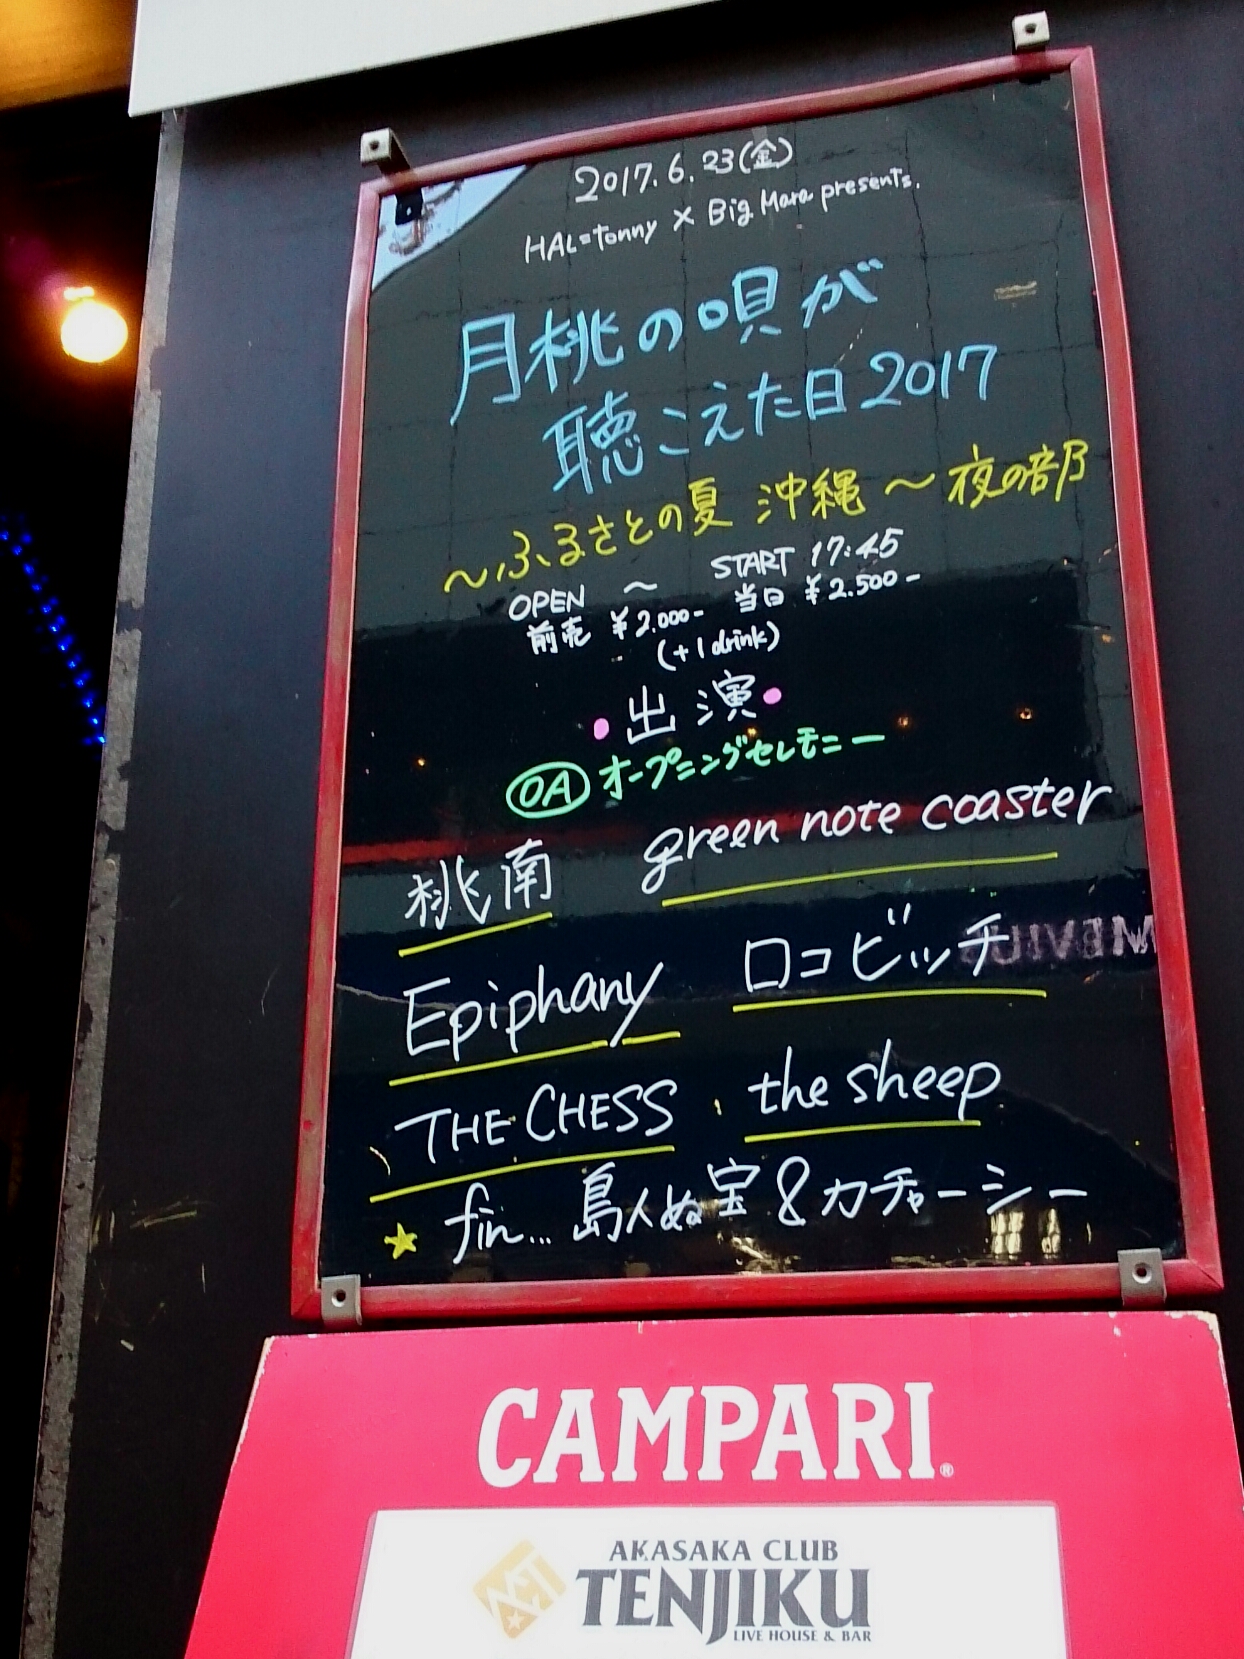 2017.6.23(金)
HAL=Tonny × Big Mara presents.
月桃の唄が
聴こえた日2017
～ふるさとの夏 沖縄～夜の部
OPEN ～ START 17:45
前売 ¥2.000- 当日 ¥2.500-
(+1drink)
・出演・
OA オープニングセレモニー
桃南 green note coaster
Epiphany ロコビッチ
THE CHESS the sheep
★ fin... 島人ぬ宝&カチャーシー
MEVIUS
CAMPARI®
ACT
AKASAKA CLUB
TENJIKU
LIVE HOUSE & BAR